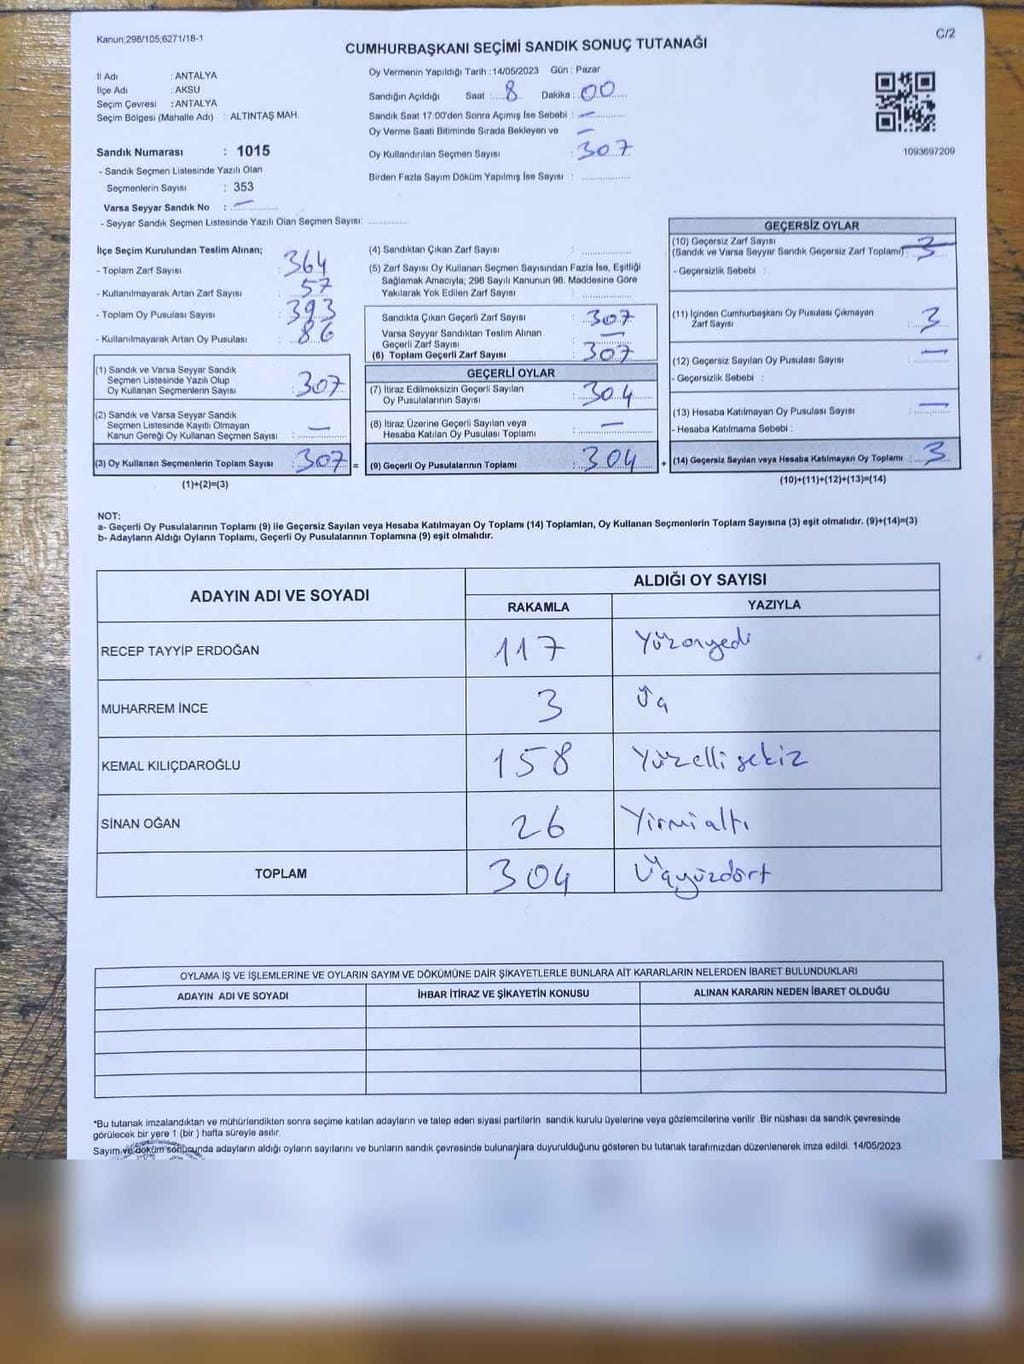 Kanun:298/105;6271/18-1
C/2
CUMHURBAŞKANI SEÇİMİ SANDIK SONUÇ TUTANAĞI
İl Adı : ANTALYA
İlçe Adı : AKSU
Seçim Çevresi : ANTALYA
Seçim Bölgesi (Mahalle Adı) : ALTINTAŞ MAH.
Sandık Numarası : 1015
- Sandık Seçmen Listesinde Yazılı Olan
Seçmenlerin Sayısı : 353
Varsa Seyyar Sandık No : —
- Seyyar Sandık Seçmen Listesinde Yazılı Olan Seçmen Sayısı: ..............
Oy Vermenin Yapıldığı Tarih : 14/05/2023 Gün : Pazar
Sandığın Açıldığı Saat : 8 Dakika : 00
Sandık Saat 17:00'den Sonra Açmış İse Sebebi : —
Oy Verme Saati Bitiminde Sırada Bekleyen ve —
Oy Kullandırılan Seçmen Sayısı : 307
Birden Fazla Sayım Döküm Yapılmış İse Sayısı : ..............
1093697209
İlçe Seçim Kurulundan Teslim Alınan;
- Toplam Zarf Sayısı : 364
- Kullanılmayarak Artan Zarf Sayısı : 57
- Toplam Oy Pusulası Sayısı : 393
- Kullanılmayarak Artan Oy Pusulası : 86
(1) Sandık ve Varsa Seyyar Sandık
Seçmen Listesinde Yazılı Olup
Oy Kullanan Seçmenlerin Sayısı : 307
(2) Sandık ve Varsa Seyyar Sandık
Seçmen Listesinde Kayıtlı Olmayan
Kanun Gereği Oy Kullanan Seçmen Sayısı : —
(3) Oy Kullanan Seçmenlerin Toplam Sayısı : 307
(1)+(2)=(3)
(4) Sandıktan Çıkan Zarf Sayısı : ..............
(5) Zarf Sayısı Oy Kullanan Seçmen Sayısından Fazla İse, Eşitliği
Sağlamak Amacıyla; 298 Sayılı Kanunun 98. Maddesine Göre
Yakılarak Yok Edilen Zarf Sayısı : ..............
Sandıkta Çıkan Geçerli Zarf Sayısı : 307
Varsa Seyyar Sandıktan Teslim Alınan
Geçerli Zarf Sayısı : —
(6) Toplam Geçerli Zarf Sayısı : 307
GEÇERLİ OYLAR
(7) İtiraz Edilmeksizin Geçerli Sayılan
Oy Pusulalarının Sayısı : 304
(8) İtiraz Üzerine Geçerli Sayılan veya
Hesaba Katılan Oy Pusulası Toplamı : —
= (9) Geçerli Oy Pusulalarının Toplamı : 304
GEÇERSİZ OYLAR
(10) Geçersiz Zarf Sayısı
(Sandık ve Varsa Seyyar Sandık Geçersiz Zarf Toplamı) : 3
- Geçersizlik Sebebi :
(11) İçinden Cumhurbaşkanı Oy Pusulası Çıkmayan
Zarf Sayısı : 3
(12) Geçersiz Sayılan Oy Pusulası Sayısı : —
- Geçersizlik Sebebi :
(13) Hesaba Katılmayan Oy Pusulası Sayısı : —
- Hesaba Katılmama Sebebi :
+ (14) Geçersiz Sayılan veya Hesaba Katılmayan Oy Toplamı : 3
(10)+(11)+(12)+(13)=(14)
NOT:
a- Geçerli Oy Pusulalarının Toplamı (9) ile Geçersiz Sayılan veya Hesaba Katılmayan Oy Toplamı (14) Toplamları, Oy Kullanan Seçmenlerin Toplam Sayısına (3) eşit olmalıdır. (9)+(14)=(3)
b- Adayların Aldığı Oyların Toplamı, Geçerli Oy Pusulalarının Toplamına (9) eşit olmalıdır.
ADAYIN ADI VE SOYADI
ALDIĞI OY SAYISI
RAKAMLA YAZIYLA
RECEP TAYYİP ERDOĞAN 117 Yüzonyedi
MUHARREM İNCE 3 Üç
KEMAL KILIÇDAROĞLU 158 Yüzelli sekiz
SİNAN OĞAN 26 Yirmialtı
TOPLAM 304 Üçyüzdört
OYLAMA İŞ VE İŞLEMLERİNE VE OYLARIN SAYIM VE DÖKÜMÜNE DAİR ŞİKAYETLERLE BUNLARA AİT KARARLARIN NELERDEN İBARET BULUNDUKLARI
ADAYIN ADI VE SOYADI İHBAR İTİRAZ VE ŞİKAYETİN KONUSU ALINAN KARARIN NEDEN İBARET OLDUĞU
*Bu tutanak imzalandıktan ve mühürlendikten sonra seçime katılan adayların ve talep eden siyasi partilerin sandık kurulu üyelerine veya gözlemcilerine verilir. Bir nüshası da sandık çevresinde
görülecek bir yere 1 (bir ) hafta süreyle asılır.
Sayım ve döküm sonucunda adayların aldığı oyların sayılarını ve bunların sandık çevresinde bulunanlara duyurulduğunu gösteren bu tutanak tarafımızdan düzenlenerek imza edildi. 14/05/2023